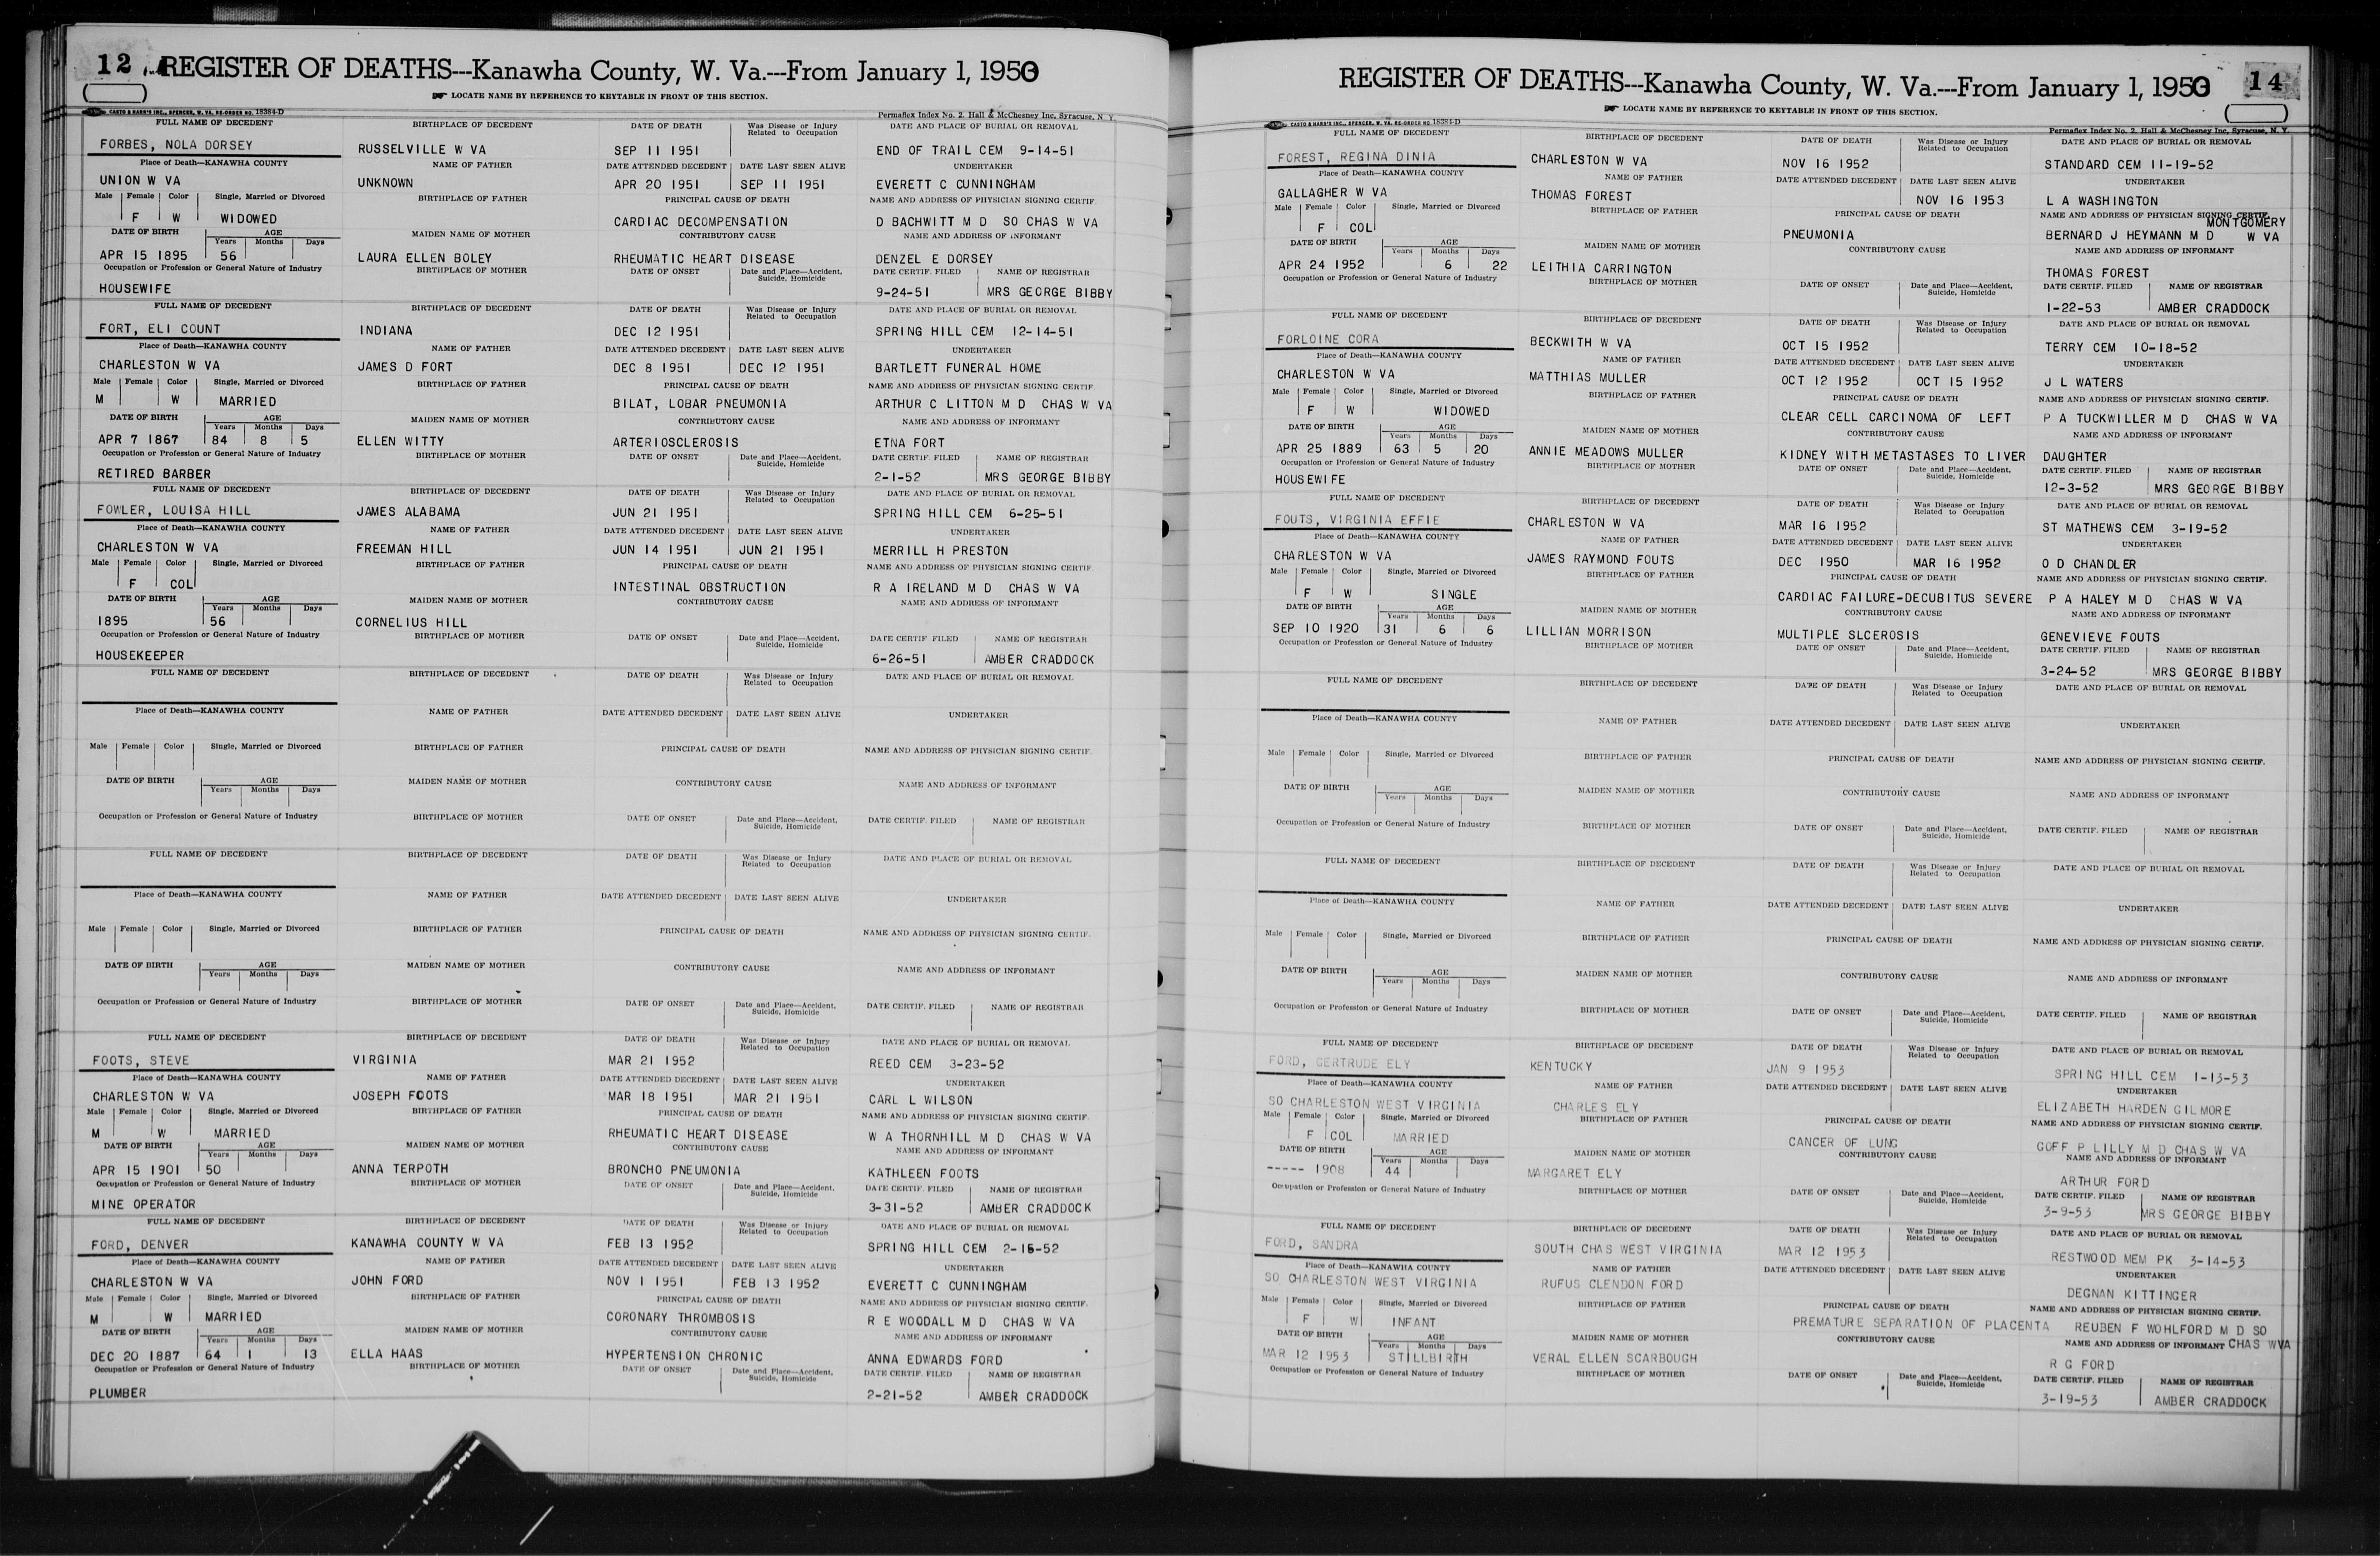 12
REGISTER OF DEATHS---Kanawha County, W. Va.---From January 1, 1950
LOCATE NAME BY REFERENCE TO KEYTABLE IN FRONT OF THIS SECTION.
CASTO & HARRIS INC., SPENCER, W. VA. RE-ORDER NO. 18384-D
Permaflex Index No. 2. Hall & McChesney Inc. Syracuse, N. Y.
FULL NAME OF DECEDENT BIRTHPLACE OF DECEDENT DATE OF DEATH Was Disease or Injury Related to Occupation DATE AND PLACE OF BURIAL OR REMOVAL
FORBES, NOLA DORSEY RUSSELVILLE W VA SEP 11 1951 END OF TRAIL CEM 9-14-51
Place of Death—KANAWHA COUNTY NAME OF FATHER DATE ATTENDED DECEDENT DATE LAST SEEN ALIVE UNDERTAKER
UNION W VA UNKNOWN APR 20 1951 SEP 11 1951 EVERETT C CUNNINGHAM
Male Female Color Single, Married or Divorced BIRTHPLACE OF FATHER PRINCIPAL CAUSE OF DEATH NAME AND ADDRESS OF PHYSICIAN SIGNING CERTIF.
F W WIDOWED CARDIAC DECOMPENSATION D BACHWITT M D SO CHAS W VA
DATE OF BIRTH AGE Years Months Days MAIDEN NAME OF MOTHER CONTRIBUTORY CAUSE NAME AND ADDRESS OF INFORMANT
APR 15 1895 56 LAURA ELLEN BOLEY RHEUMATIC HEART DISEASE DENZEL E DORSEY
Occupation or Profession or General Nature of Industry BIRTHPLACE OF MOTHER DATE OF ONSET Date and Place—Accident, Suicide, Homicide DATE CERTIF. FILED NAME OF REGISTRAR
HOUSEWIFE 9-24-51 MRS GEORGE BIBBY
FULL NAME OF DECEDENT BIRTHPLACE OF DECEDENT DATE OF DEATH Was Disease or Injury Related to Occupation DATE AND PLACE OF BURIAL OR REMOVAL
FORT, ELI COUNT INDIANA DEC 12 1951 SPRING HILL CEM 12-14-51
Place of Death—KANAWHA COUNTY NAME OF FATHER DATE ATTENDED DECEDENT DATE LAST SEEN ALIVE UNDERTAKER
CHARLESTON W VA JAMES D FORT DEC 8 1951 DEC 12 1951 BARTLETT FUNERAL HOME
Male Female Color Single, Married or Divorced BIRTHPLACE OF FATHER PRINCIPAL CAUSE OF DEATH NAME AND ADDRESS OF PHYSICIAN SIGNING CERTIF.
M W MARRIED BILAT, LOBAR PNEUMONIA ARTHUR C LITTON M D CHAS W VA
DATE OF BIRTH AGE Years Months Days MAIDEN NAME OF MOTHER CONTRIBUTORY CAUSE NAME AND ADDRESS OF INFORMANT
APR 7 1867 84 8 5 ELLEN WITTY ARTERIOSCLEROSIS ETNA FORT
Occupation or Profession or General Nature of Industry BIRTHPLACE OF MOTHER DATE OF ONSET Date and Place—Accident, Suicide, Homicide DATE CERTIF. FILED NAME OF REGISTRAR
RETIRED BARBER 2-1-52 MRS GEORGE BIBBY
FULL NAME OF DECEDENT BIRTHPLACE OF DECEDENT DATE OF DEATH Was Disease or Injury Related to Occupation DATE AND PLACE OF BURIAL OR REMOVAL
FOWLER, LOUISA HILL JAMES ALABAMA JUN 21 1951 SPRING HILL CEM 6-25-51
Place of Death—KANAWHA COUNTY NAME OF FATHER DATE ATTENDED DECEDENT DATE LAST SEEN ALIVE UNDERTAKER
CHARLESTON W VA FREEMAN HILL JUN 14 1951 JUN 21 1951 MERRILL H PRESTON
Male Female Color Single, Married or Divorced BIRTHPLACE OF FATHER PRINCIPAL CAUSE OF DEATH NAME AND ADDRESS OF PHYSICIAN SIGNING CERTIF.
F COL INTESTINAL OBSTRUCTION R A IRELAND M D CHAS W VA
DATE OF BIRTH AGE Years Months Days MAIDEN NAME OF MOTHER CONTRIBUTORY CAUSE NAME AND ADDRESS OF INFORMANT
1895 56 CORNELIUS HILL
Occupation or Profession or General Nature of Industry BIRTHPLACE OF MOTHER DATE OF ONSET Date and Place—Accident, Suicide, Homicide DATE CERTIF FILED NAME OF REGISTRAR
HOUSEKEEPER 6-26-51 AMBER CRADDOCK
FULL NAME OF DECEDENT BIRTHPLACE OF DECEDENT DATE OF DEATH Was Disease or Injury Related to Occupation DATE AND PLACE OF BURIAL OR REMOVAL
Place of Death—KANAWHA COUNTY NAME OF FATHER DATE ATTENDED DECEDENT DATE LAST SEEN ALIVE UNDERTAKER
Male Female Color Single, Married or Divorced BIRTHPLACE OF FATHER PRINCIPAL CAUSE OF DEATH NAME AND ADDRESS OF PHYSICIAN SIGNING CERTIF.
DATE OF BIRTH AGE Years Months Days MAIDEN NAME OF MOTHER CONTRIBUTORY CAUSE NAME AND ADDRESS OF INFORMANT
Occupation or Profession or General Nature of Industry BIRTHPLACE OF MOTHER DATE OF ONSET Date and Place—Accident, Suicide, Homicide DATE CERTIF. FILED NAME OF REGISTRAR
FULL NAME OF DECEDENT BIRTHPLACE OF DECEDENT DATE OF DEATH Was Disease or Injury Related to Occupation DATE AND PLACE OF BURIAL OR REMOVAL
Place of Death—KANAWHA COUNTY NAME OF FATHER DATE ATTENDED DECEDENT DATE LAST SEEN ALIVE UNDERTAKER
Male Female Color Single, Married or Divorced BIRTHPLACE OF FATHER PRINCIPAL CAUSE OF DEATH NAME AND ADDRESS OF PHYSICIAN SIGNING CERTIF.
DATE OF BIRTH AGE Years Months Days MAIDEN NAME OF MOTHER CONTRIBUTORY CAUSE NAME AND ADDRESS OF INFORMANT
Occupation or Profession or General Nature of Industry BIRTHPLACE OF MOTHER DATE OF ONSET Date and Place—Accident, Suicide, Homicide DATE CERTIF. FILED NAME OF REGISTRAR
FULL NAME OF DECEDENT BIRTHPLACE OF DECEDENT DATE OF DEATH Was Disease or Injury Related to Occupation DATE AND PLACE OF BURIAL OR REMOVAL
FOOTS, STEVE VIRGINIA MAR 21 1952 REED CEM 3-23-52
Place of Death—KANAWHA COUNTY NAME OF FATHER DATE ATTENDED DECEDENT DATE LAST SEEN ALIVE UNDERTAKER
CHARLESTON W VA JOSEPH FOOTS MAR 18 1951 MAR 21 1951 CARL L WILSON
Male Female Color Single, Married or Divorced BIRTHPLACE OF FATHER PRINCIPAL CAUSE OF DEATH NAME AND ADDRESS OF PHYSICIAN SIGNING CERTIF.
M W MARRIED RHEUMATIC HEART DISEASE W A THORNHILL M D CHAS W VA
DATE OF BIRTH AGE Years Months Days MAIDEN NAME OF MOTHER CONTRIBUTORY CAUSE NAME AND ADDRESS OF INFORMANT
APR 15 1901 50 ANNA TERPOTH BRONCHO PNEUMONIA KATHLEEN FOOTS
Occupation or Profession or General Nature of Industry BIRTHPLACE OF MOTHER DATE OF ONSET Date and Place—Accident, Suicide, Homicide DATE CERTIF. FILED NAME OF REGISTRAR
MINE OPERATOR 3-31-52 AMBER CRADDOCK
FULL NAME OF DECEDENT BIRTHPLACE OF DECEDENT DATE OF DEATH Was Disease or Injury Related to Occupation DATE AND PLACE OF BURIAL OR REMOVAL
FORD, DENVER KANAWHA COUNTY W VA FEB 13 1952 SPRING HILL CEM 2-16-52
Place of Death—KANAWHA COUNTY NAME OF FATHER DATE ATTENDED DECEDENT DATE LAST SEEN ALIVE UNDERTAKER
CHARLESTON W VA JOHN FORD NOV 1 1951 FEB 13 1952 EVERETT C CUNNINGHAM
Male Female Color Single, Married or Divorced BIRTHPLACE OF FATHER PRINCIPAL CAUSE OF DEATH NAME AND ADDRESS OF PHYSICIAN SIGNING CERTIF.
M W MARRIED CORONARY THROMBOSIS R E WOODALL M D CHAS W VA
DATE OF BIRTH AGE Years Months Days MAIDEN NAME OF MOTHER CONTRIBUTORY CAUSE NAME AND ADDRESS OF INFORMANT
DEC 20 1887 64 1 13 ELLA HAAS HYPERTENSION CHRONIC ANNA EDWARDS FORD
Occupation or Profession or General Nature of Industry BIRTHPLACE OF MOTHER DATE OF ONSET Date and Place—Accident, Suicide, Homicide DATE CERTIF. FILED NAME OF REGISTRAR
PLUMBER 2-21-52 AMBER CRADDOCK
REGISTER OF DEATHS---Kanawha County, W. Va.---From January 1, 1950
14
LOCATE NAME BY REFERENCE TO KEYTABLE IN FRONT OF THIS SECTION.
CASTO & HARRIS INC., SPENCER, W. VA. RE-ORDER NO. 18384-D
Permaflex Index No. 2. Hall & McChesney Inc. Syracuse, N. Y.
FULL NAME OF DECEDENT BIRTHPLACE OF DECEDENT DATE OF DEATH Was Disease or Injury Related to Occupation DATE AND PLACE OF BURIAL OR REMOVAL
FOREST, REGINA DINIA CHARLESTON W VA NOV 16 1952 STANDARD CEM 11-19-52
Place of Death—KANAWHA COUNTY NAME OF FATHER DATE ATTENDED DECEDENT DATE LAST SEEN ALIVE UNDERTAKER
GALLAGHER W VA THOMAS FOREST NOV 16 1953 L A WASHINGTON
Male Female Color Single, Married or Divorced BIRTHPLACE OF FATHER PRINCIPAL CAUSE OF DEATH NAME AND ADDRESS OF PHYSICIAN SIGNING CERTIF.
MONTGOMERY
F COL PNEUMONIA BERNARD J HEYMANN M D W VA
DATE OF BIRTH AGE Years Months Days MAIDEN NAME OF MOTHER CONTRIBUTORY CAUSE NAME AND ADDRESS OF INFORMANT
APR 24 1952 6 22 LEITHIA CARRINGTON THOMAS FOREST
Occupation or Profession or General Nature of Industry BIRTHPLACE OF MOTHER DATE OF ONSET Date and Place—Accident, Suicide, Homicide DATE CERTIF. FILED NAME OF REGISTRAR
1-22-53 AMBER CRADDOCK
FULL NAME OF DECEDENT BIRTHPLACE OF DECEDENT DATE OF DEATH Was Disease or Injury Related to Occupation DATE AND PLACE OF BURIAL OR REMOVAL
FORLOINE CORA BECKWITH W VA OCT 15 1952 TERRY CEM 10-18-52
Place of Death—KANAWHA COUNTY NAME OF FATHER DATE ATTENDED DECEDENT DATE LAST SEEN ALIVE UNDERTAKER
CHARLESTON W VA MATTHIAS MULLER OCT 12 1952 OCT 15 1952 J L WATERS
Male Female Color Single, Married or Divorced BIRTHPLACE OF FATHER PRINCIPAL CAUSE OF DEATH NAME AND ADDRESS OF PHYSICIAN SIGNING CERTIF.
F W WIDOWED CLEAR CELL CARCINOMA OF LEFT P A TUCKWILLER M D CHAS W VA
DATE OF BIRTH AGE Years Months Days MAIDEN NAME OF MOTHER CONTRIBUTORY CAUSE NAME AND ADDRESS OF INFORMANT
APR 25 1889 63 5 20 ANNIE MEADOWS MULLER KIDNEY WITH METASTASES TO LIVER DAUGHTER
Occupation or Profession or General Nature of Industry BIRTHPLACE OF MOTHER DATE OF ONSET Date and Place—Accident, Suicide, Homicide DATE CERTIF. FILED NAME OF REGISTRAR
HOUSEWIFE 12-3-52 MRS GEORGE BIBBY
FULL NAME OF DECEDENT BIRTHPLACE OF DECEDENT DATE OF DEATH Was Disease or Injury Related to Occupation DATE AND PLACE OF BURIAL OR REMOVAL
FOUTS, VIRGINIA EFFIE CHARLESTON W VA MAR 16 1952 ST MATHEWS CEM 3-19-52
Place of Death—KANAWHA COUNTY NAME OF FATHER DATE ATTENDED DECEDENT DATE LAST SEEN ALIVE UNDERTAKER
CHARLESTON W VA JAMES RAYMOND FOUTS DEC 1950 MAR 16 1952 O D CHANDLER
Male Female Color Single, Married or Divorced BIRTHPLACE OF FATHER PRINCIPAL CAUSE OF DEATH NAME AND ADDRESS OF PHYSICIAN SIGNING CERTIF.
F W SINGLE CARDIAC FAILURE-DECUBITUS SEVERE P A HALEY M D CHAS W VA
DATE OF BIRTH AGE Years Months Days MAIDEN NAME OF MOTHER CONTRIBUTORY CAUSE NAME AND ADDRESS OF INFORMANT
SEP 10 1920 31 6 6 LILLIAN MORRISON MULTIPLE SLCEROSIS GENEVIEVE FOUTS
Occupation or Profession or General Nature of Industry BIRTHPLACE OF MOTHER DATE OF ONSET Date and Place—Accident, Suicide, Homicide DATE CERTIF. FILED NAME OF REGISTRAR
3-24-52 MRS GEORGE BIBBY
FULL NAME OF DECEDENT BIRTHPLACE OF DECEDENT DATE OF DEATH Was Disease or Injury Related to Occupation DATE AND PLACE OF BURIAL OR REMOVAL
Place of Death—KANAWHA COUNTY NAME OF FATHER DATE ATTENDED DECEDENT DATE LAST SEEN ALIVE UNDERTAKER
Male Female Color Single, Married or Divorced BIRTHPLACE OF FATHER PRINCIPAL CAUSE OF DEATH NAME AND ADDRESS OF PHYSICIAN SIGNING CERTIF.
DATE OF BIRTH AGE Years Months Days MAIDEN NAME OF MOTHER CONTRIBUTORY CAUSE NAME AND ADDRESS OF INFORMANT
Occupation or Profession or General Nature of Industry BIRTHPLACE OF MOTHER DATE OF ONSET Date and Place—Accident, Suicide, Homicide DATE CERTIF. FILED NAME OF REGISTRAR
FULL NAME OF DECEDENT BIRTHPLACE OF DECEDENT DATE OF DEATH Was Disease or Injury Related to Occupation DATE AND PLACE OF BURIAL OR REMOVAL
Place of Death—KANAWHA COUNTY NAME OF FATHER DATE ATTENDED DECEDENT DATE LAST SEEN ALIVE UNDERTAKER
Male Female Color Single, Married or Divorced BIRTHPLACE OF FATHER PRINCIPAL CAUSE OF DEATH NAME AND ADDRESS OF PHYSICIAN SIGNING CERTIF.
DATE OF BIRTH AGE Years Months Days MAIDEN NAME OF MOTHER CONTRIBUTORY CAUSE NAME AND ADDRESS OF INFORMANT
Occupation or Profession or General Nature of Industry BIRTHPLACE OF MOTHER DATE OF ONSET Date and Place—Accident, Suicide, Homicide DATE CERTIF. FILED NAME OF REGISTRAR
FULL NAME OF DECEDENT BIRTHPLACE OF DECEDENT DATE OF DEATH Was Disease or Injury Related to Occupation DATE AND PLACE OF BURIAL OR REMOVAL
FORD, GERTRUDE ELY KENTUCKY JAN 9 1953 SPRING HILL CEM 1-13-53
Place of Death—KANAWHA COUNTY NAME OF FATHER DATE ATTENDED DECEDENT DATE LAST SEEN ALIVE UNDERTAKER
SO CHARLESTON WEST VIRGINIA CHARLES ELY ELIZABETH HARDEN GILMORE
Male Female Color Single, Married or Divorced BIRTHPLACE OF FATHER PRINCIPAL CAUSE OF DEATH NAME AND ADDRESS OF PHYSICIAN SIGNING CERTIF.
F COL MARRIED CANCER OF LUNG GOFF P LILLY M D CHAS W VA
DATE OF BIRTH AGE Years Months Days MAIDEN NAME OF MOTHER CONTRIBUTORY CAUSE NAME AND ADDRESS OF INFORMANT
----- 1908 44 MARGARET ELY ARTHUR FORD
Occupation or Profession or General Nature of Industry BIRTHPLACE OF MOTHER DATE OF ONSET Date and Place—Accident, Suicide, Homicide DATE CERTIF. FILED NAME OF REGISTRAR
3-9-53 MRS GEORGE BIBBY
FULL NAME OF DECEDENT BIRTHPLACE OF DECEDENT DATE OF DEATH Was Disease or Injury Related to Occupation DATE AND PLACE OF BURIAL OR REMOVAL
FORD, SANDRA SOUTH CHAS WEST VIRGINIA MAR 12 1953 RESTWOOD MEM PK 3-14-53
Place of Death—KANAWHA COUNTY NAME OF FATHER DATE ATTENDED DECEDENT DATE LAST SEEN ALIVE UNDERTAKER
SO CHARLESTON WEST VIRGINIA RUFUS CLENDON FORD DEGNAN KITTINGER
Male Female Color Single, Married or Divorced BIRTHPLACE OF FATHER PRINCIPAL CAUSE OF DEATH NAME AND ADDRESS OF PHYSICIAN SIGNING CERTIF.
F W INFANT PREMATURE SEPARATION OF PLACENTA REUBEN F WOHLFORD M D SO
DATE OF BIRTH AGE Years Months Days MAIDEN NAME OF MOTHER CONTRIBUTORY CAUSE NAME AND ADDRESS OF INFORMANT CHAS W VA
MAR 12 1953 STILLBIRTH VERAL ELLEN SCARBOUGH R G FORD
Occupation or Profession or General Nature of Industry BIRTHPLACE OF MOTHER DATE OF ONSET Date and Place—Accident, Suicide, Homicide DATE CERTIF. FILED NAME OF REGISTRAR
3-19-53 AMBER CRADDOCK